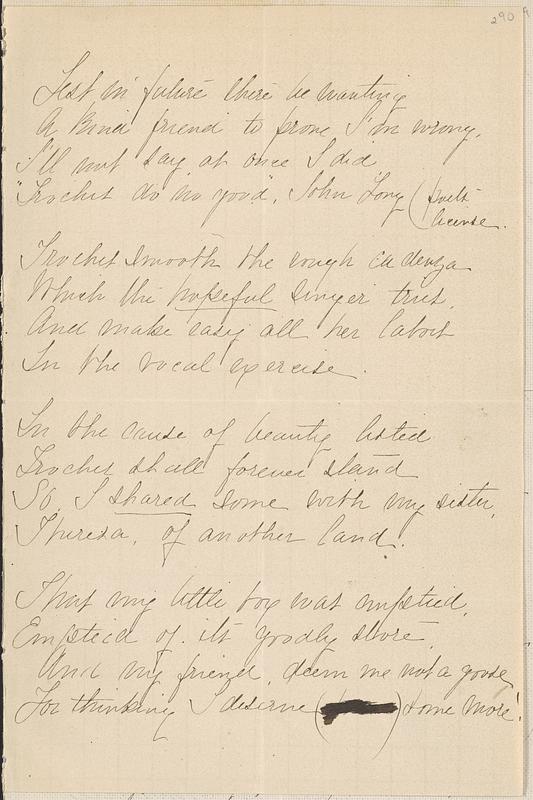 290
Lest in future there be wanting
A kind friend to prove I'm wrong,
I'll not say at once I did
"Troches do no good", John Long (poet's
license.
Troches smooth the rough cadenza
Which the hopeful singer tries,
And make easy all her labors
In the vocal exercise.
In the cause of beauty listed
Troches shall forever stand
So, I shared some with my sister,
Theresa, of another land.
That my little box was emptied,
Emptied of its goodly store,
And my friend, deem me not a goose,
For thinking I deserve ( ) some more!